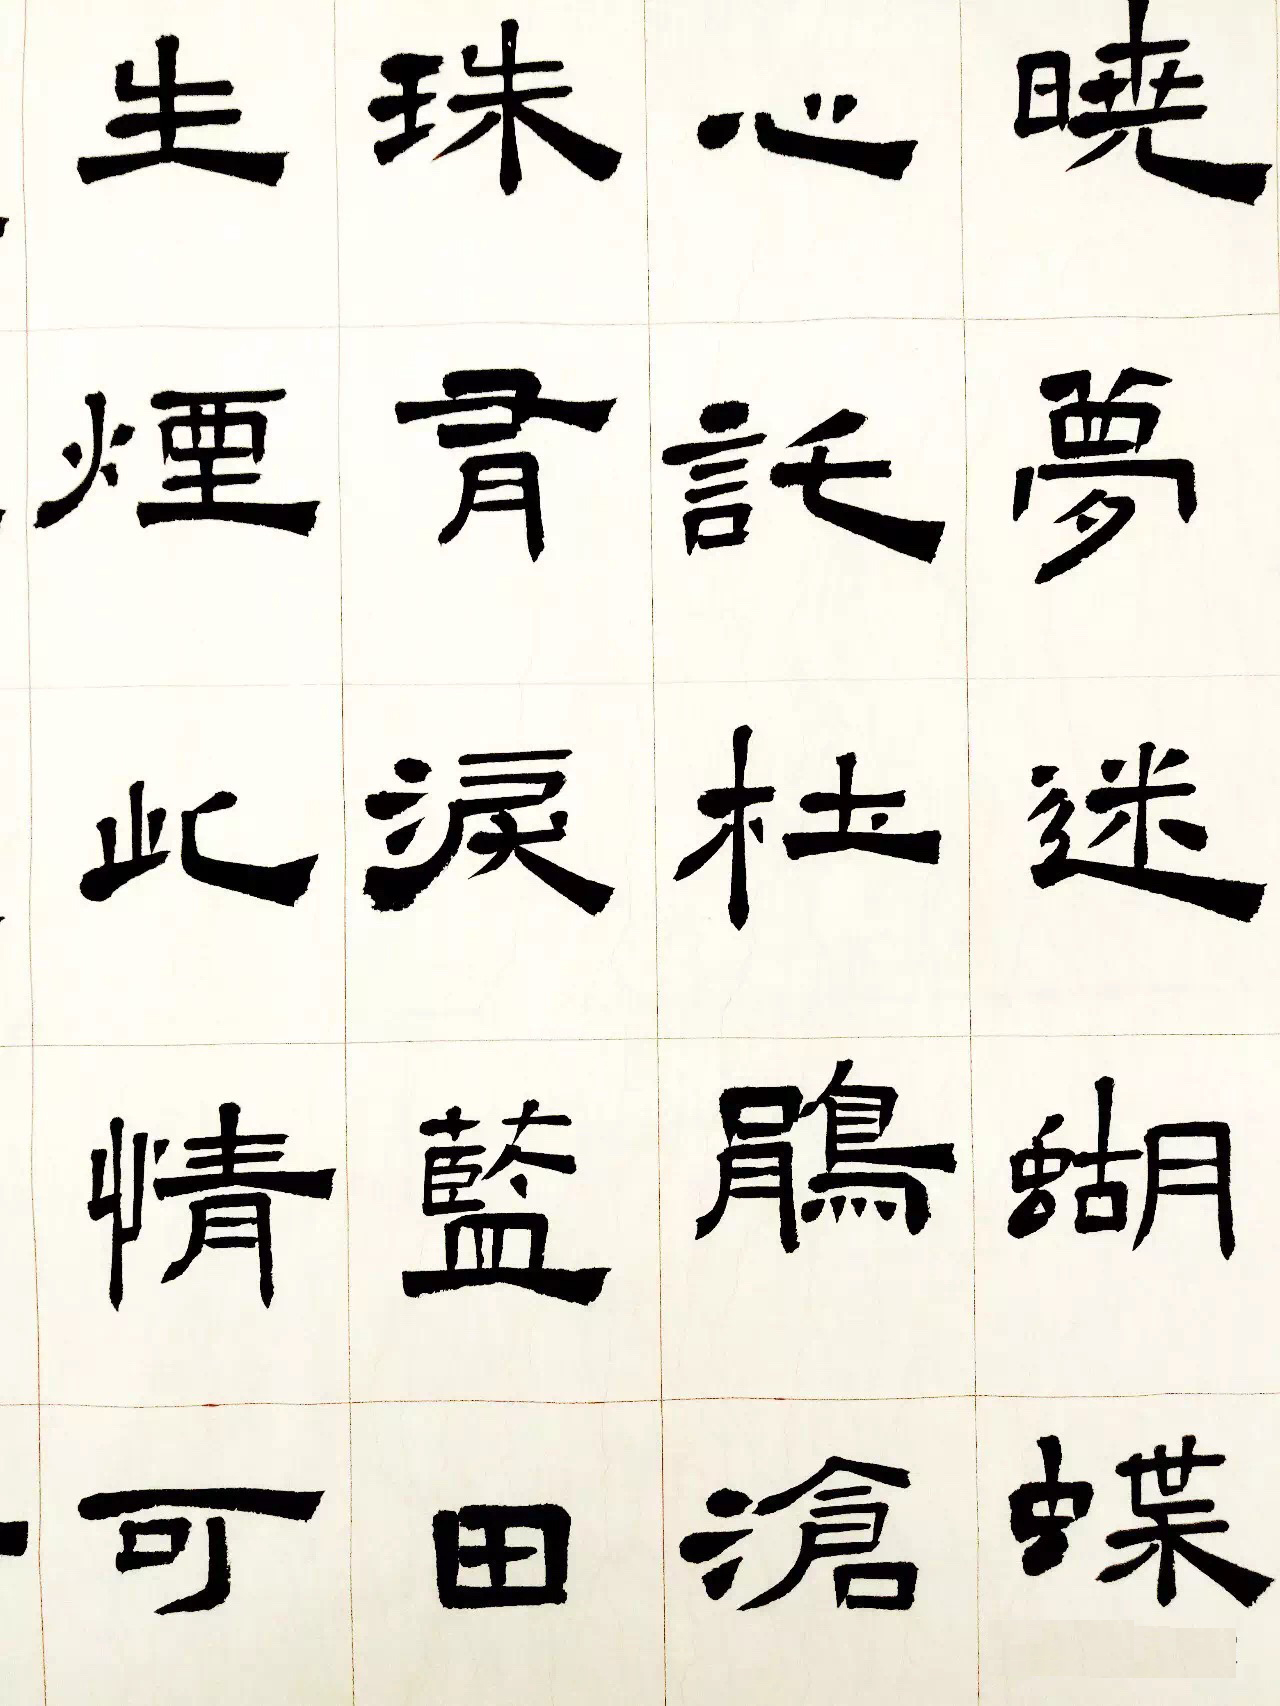 曉夢迷蝴蝶
心託杜鵑滄
珠有淚藍田
生煙此情可